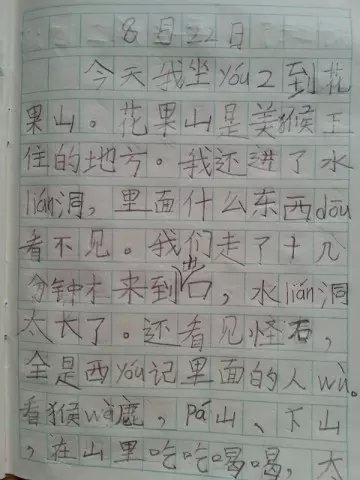 8月22日
今天我坐yóu2到花
果山。花果山是美猴王
住的地方。我还进了水
lián洞，里面什么东西dōu
看不见。我们走了十几
分钟才来到岩，水lián洞
太长了。还看见怪石，
全是西yóu记里面的人wù。
看猴wà鹿，pá山、下山
，在山里吃吃喝喝，太